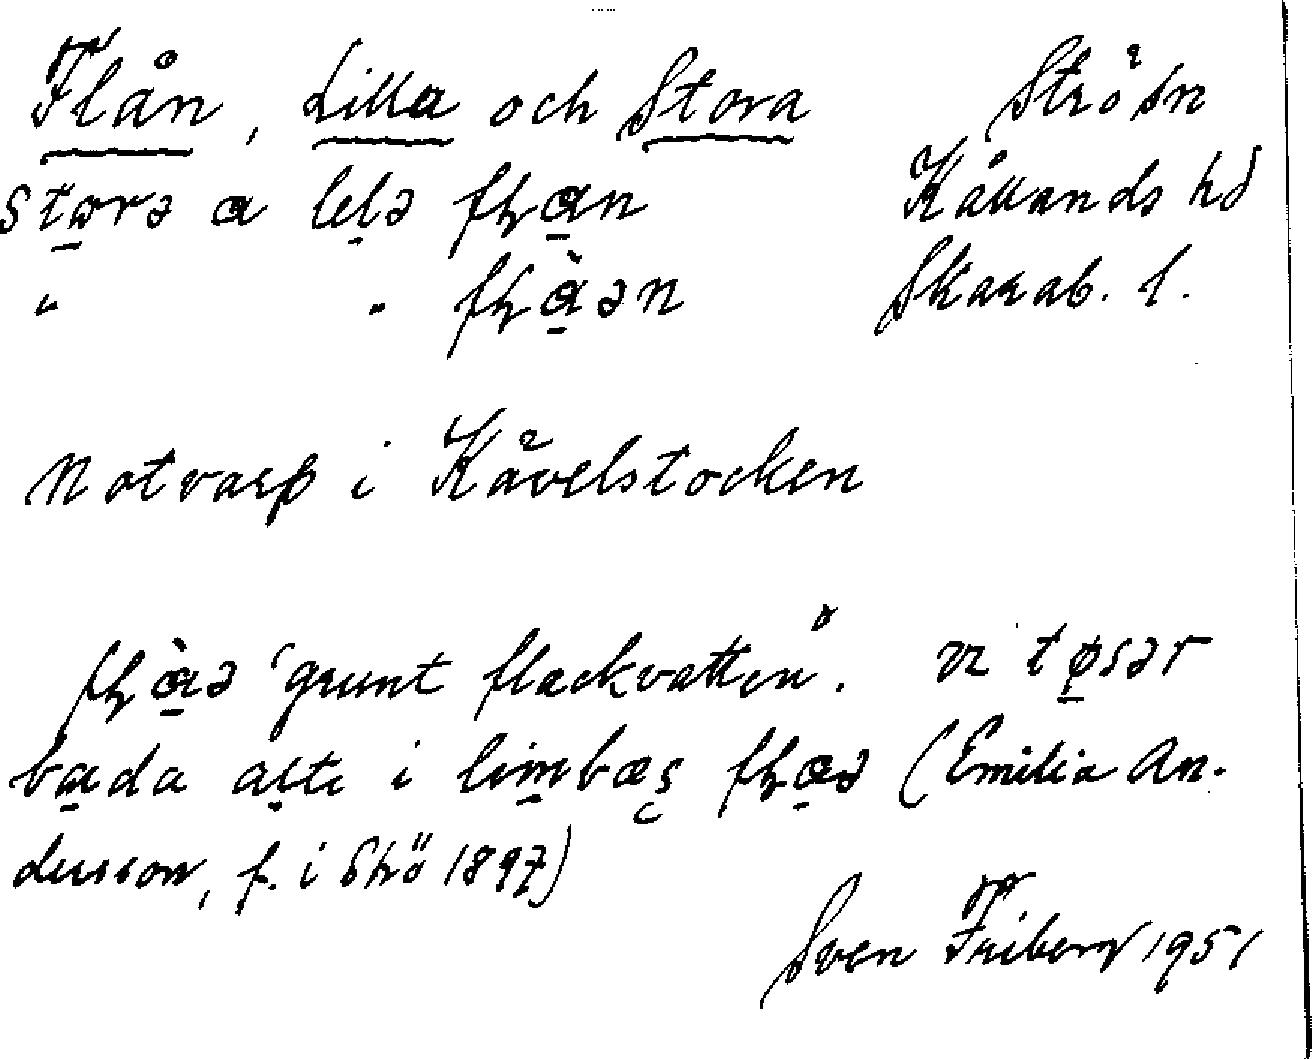 Flån, Lilla och Stora Strö sn
stọrə a lelə fḷan Kållands hd
" " fḷàən Skarab. l.
Notvarp i Kåvelstocken
fḷàə 'grunt flackvatten'. vi tøsər
bada alti i limbæs fḷaə (Emilia An-
dersson, f. i Strö 1897)
Sven Friberg 1951